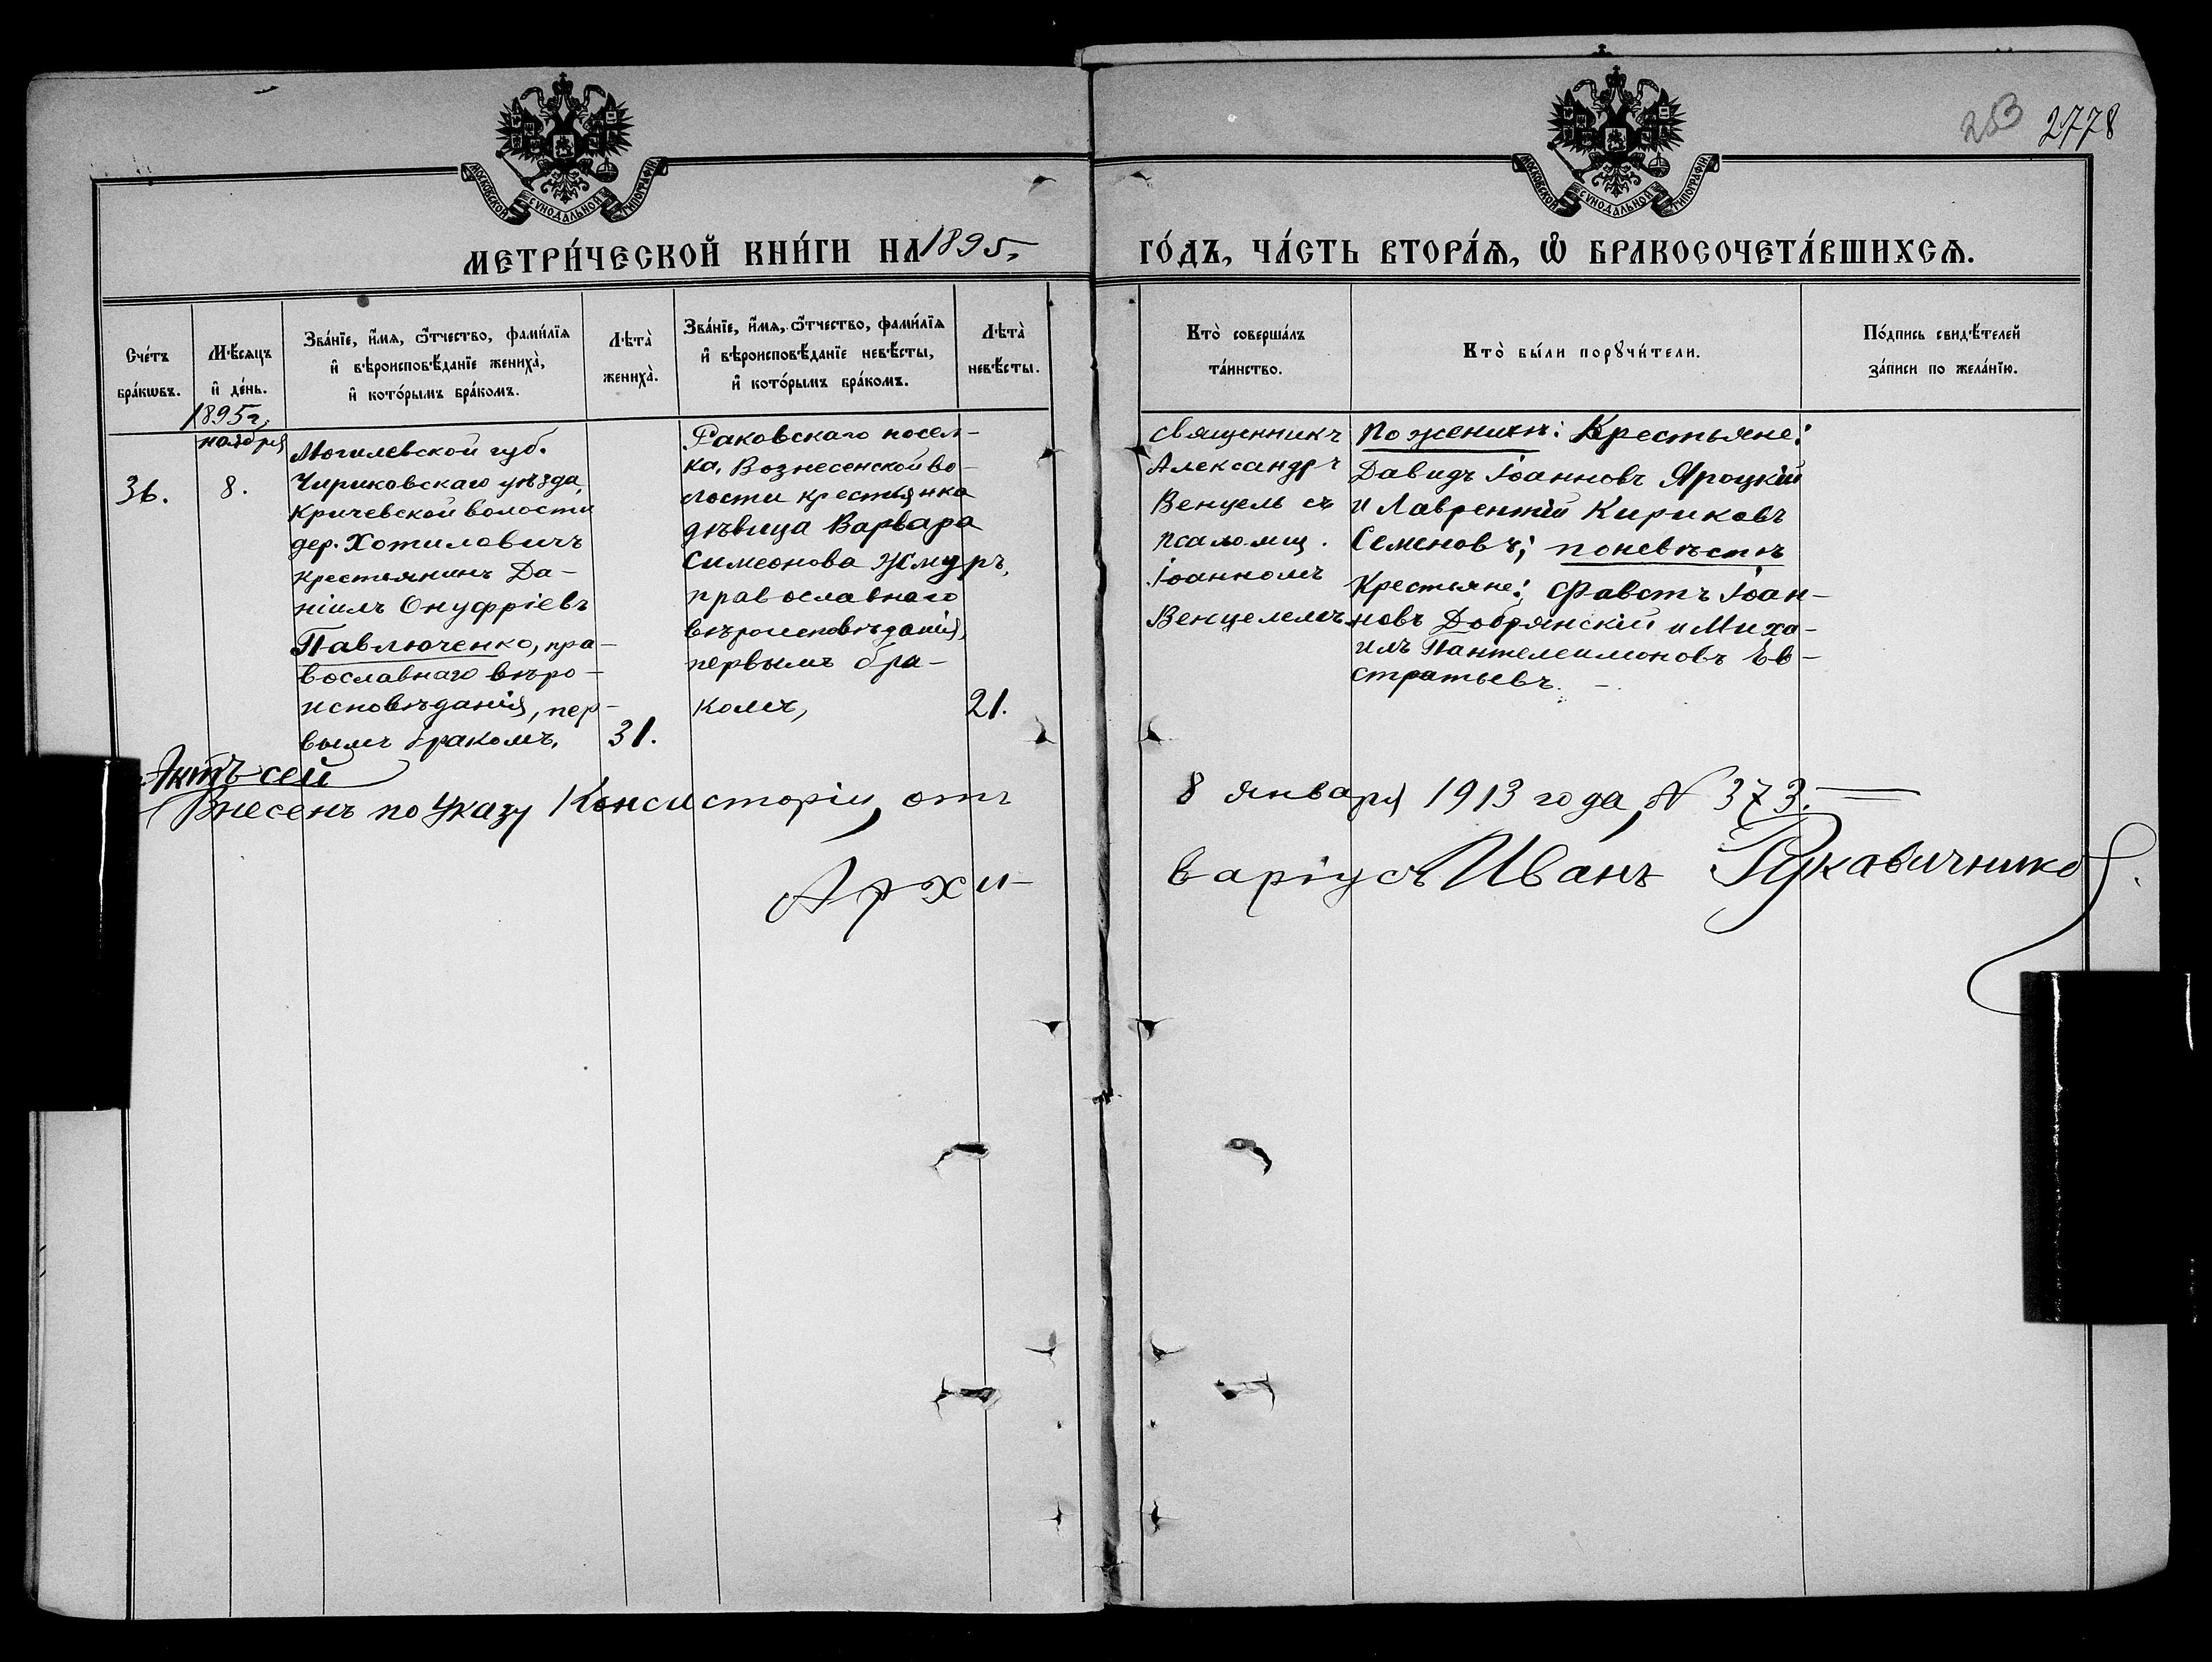 253 2778
МОСКОВСКОЙ СѴНОДАЛЬНОЙ ТИПОГРАФІИ
МОСКОВСКОЙ СѴНОДАЛЬНОЙ ТИПОГРАФІИ
МЕТРИ́ЧЕСКОЙ КНИ́ГИ НА 1895,
ГО́ДЪ, ЧА́СТЬ ВТОРА́Ѧ, Ѽ БРАКОСОЧЕТА́ВШИХСѦ.
Сче́тъ
бра́кѡвъ.
Мѣ́сяцъ
и҆ де́нь.
Зва́нїе, и҆́мѧ, ѻ҆́тчество, фами́лїѧ
и҆ вѣроисповѣ́данїе жениха̀,
и҆ кото́рымъ бра́комъ.
Лѣта̀
жениха̀.
Зва́нїе, и҆́мѧ, ѻ҆́тчество, фами́лїѧ
и҆ вѣроисповѣ́данїе невѣ́сты,
и҆ кото́рымъ бра́комъ.
Лѣта̀
невѣ́сты.
Кто̀ соверша́лъ
та́инство.
Кто̀ бы́ли порꙋчи́тели.
По́дпись свидѣ́телей
за́писи по жела́нїю.
36.
1895 г,
ноября
8.
Могилевской губ.
Чириковскаго уѣзда,
Кричевской волости
дер. Хотиловичъ
крестьянинъ Да-
нiилъ Онуфрiевъ
Павлюченко, пра-
вославнаго вѣро-
исповѣданiя, пер-
вымъ бракомъ,
31.
Раковскаго посел-
ка, Вознесенской во-
лости крестьянка
дѣвица Варвара
Симеонова Жмуръ,
православнаго
вѣроисповѣданiя,
первымъ бра-
комъ,
21.
Священникъ
Александръ
Венцель съ
псаломщ.
Iоанномъ
Венцелемъ.
По женихѣ: Крестьяне:
Давидъ Iоанновъ Яроцкiй
и Лаврентiй Кириковъ
Семеновъ; по невѣстѣ
Крестьяне: Фавстъ Iоан-
новъ Добрянскiй и Миха-
илъ Пантелеимоновъ Ев-
стратьевъ. -
Актъ сей
Внесенъ по Указу Консисторiи, отъ 8 января 1913 года, N 373.
Архи-варiусъ Иванъ Рукавичников